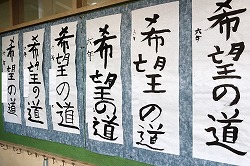 希望の道
六年
希望の道
希望の道
希望の道
希望の道
希望の道